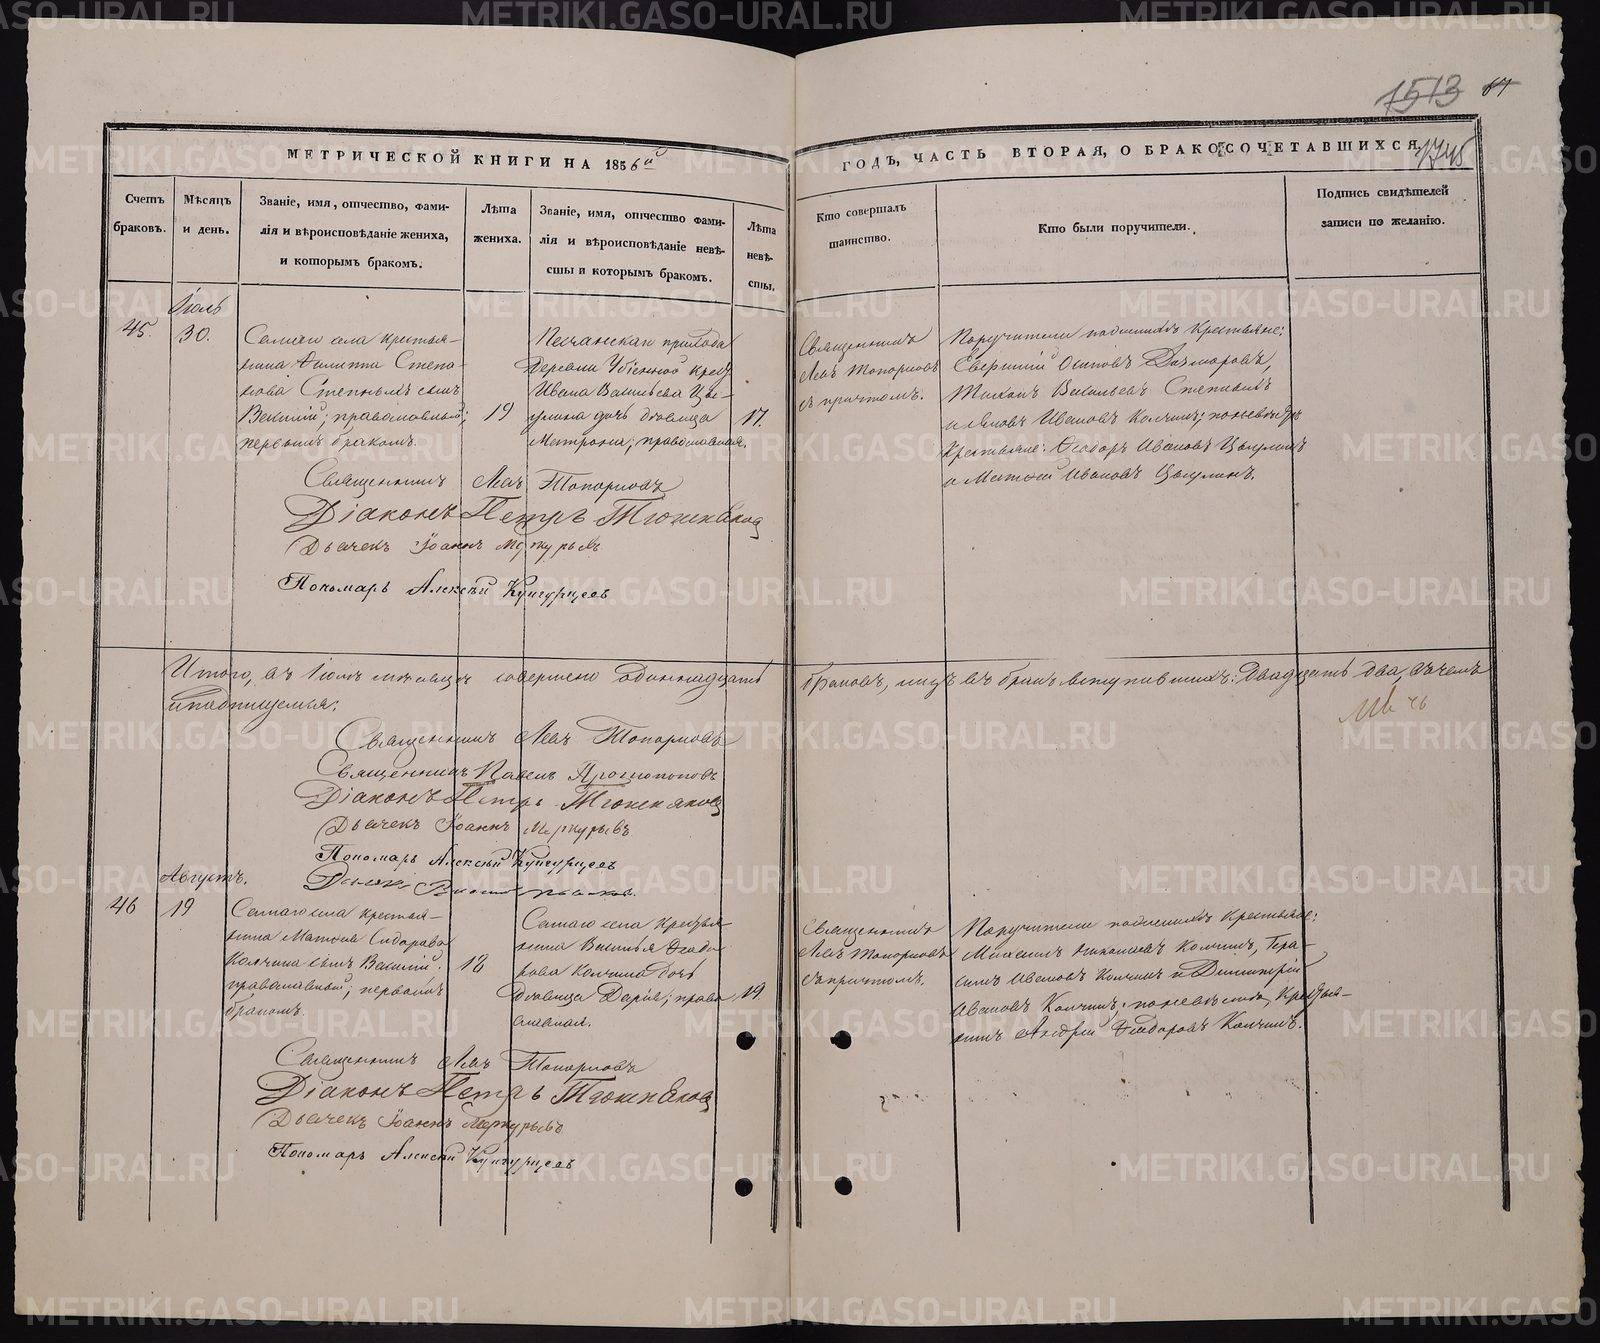 1513 67
МЕТРИЧЕСКОЙ КНИГИ НА 1856й
ГОДЪ, ЧАСТЬ ВТОРАЯ, О БРАКОСОЧЕТАВШИХСЯ.
1745
Счетъ браковъ.
Мѣсяцъ и день.
Званіе, имя, отчество, фами-
лія и вѣроисповѣданіе жениха,
и которымъ бракомъ.
Лѣта жениха.
Званіе, имя, отчество фами-
лія и вѣроисповѣданіе невѣ-
сты и которымъ бракомъ.
Лѣта невѣ-
сты.
Кто совершалъ
таинство.
Кто были поручители.
Подпись свидѣтелей
записи по желанію.
Іюль
45.
30.
Самаго села крестья-
нина Филиппа Степа-
нова Степныхъ сынъ
Василій; православный;
первымъ бракомъ.
19
Песчанскаго прихода
Деревни Убіенной крес
Ивана Васильева Цы-
гулина дочь дѣвица
Матрона; православная.
17.
Священникъ
Левъ Топорковъ
съ причтомъ.
Поручители по женихѣ Крестьяне:
Евгеній Осиповъ
Тихонъ Васильевъ Степныхъ
Ивановъ Колчинъ; по невѣстѣ
Крестьяне: Ѳеодоръ Ивановъ
и Матѳей Ивановъ
Священникъ Левъ Топорковъ
Діаконъ Петръ Тюшняковъ
Дьячекъ Іоаннъ Меркурьевъ
Пономарь Алексѣй Кунгурцевъ
Итого, въ Іюлѣ мѣсяцѣ совершено одиннадцать
браковъ, лицъ въ бракъ вступившихъ: двадцать два, въ чемъ
и подпишемся:
Священникъ Левъ Топорковъ
Священникъ Павелъ Протопоповъ
Діаконъ Петръ Тюшняковъ
Дьячекъ Іоаннъ Меркурьевъ
Пономарь Алексѣй Кунгурцевъ
Августъ.
46
19
Самаго села крестья-
нина Матѳея Сидорова
Колчина сынъ Василій;
православный; первымъ
бракомъ.
18
Самаго села Крестья-
нина Василья Ѳеодо-
рова Колчина дочь
дѣвица Дарія; право-
славная.
19.
Священникъ
Левъ Топорковъ
съ причтомъ.
Поручители по женихѣ Крестьяне:
Михаилъ Николаевъ Колчинъ, Гера-
симъ Ивановъ Колчинъ и Димитрій
Ивановъ Колчинъ; по невѣстѣ, Крестья-
нинъ Андрей Ѳеодоровъ Колчинъ.
Священникъ Левъ Топорковъ
Діаконъ Петръ Тюшняковъ
Дьячекъ Іоаннъ Меркурьевъ
Пономарь Алексѣй Кунгурцевъ
METRIKI.GASO-URAL.RU